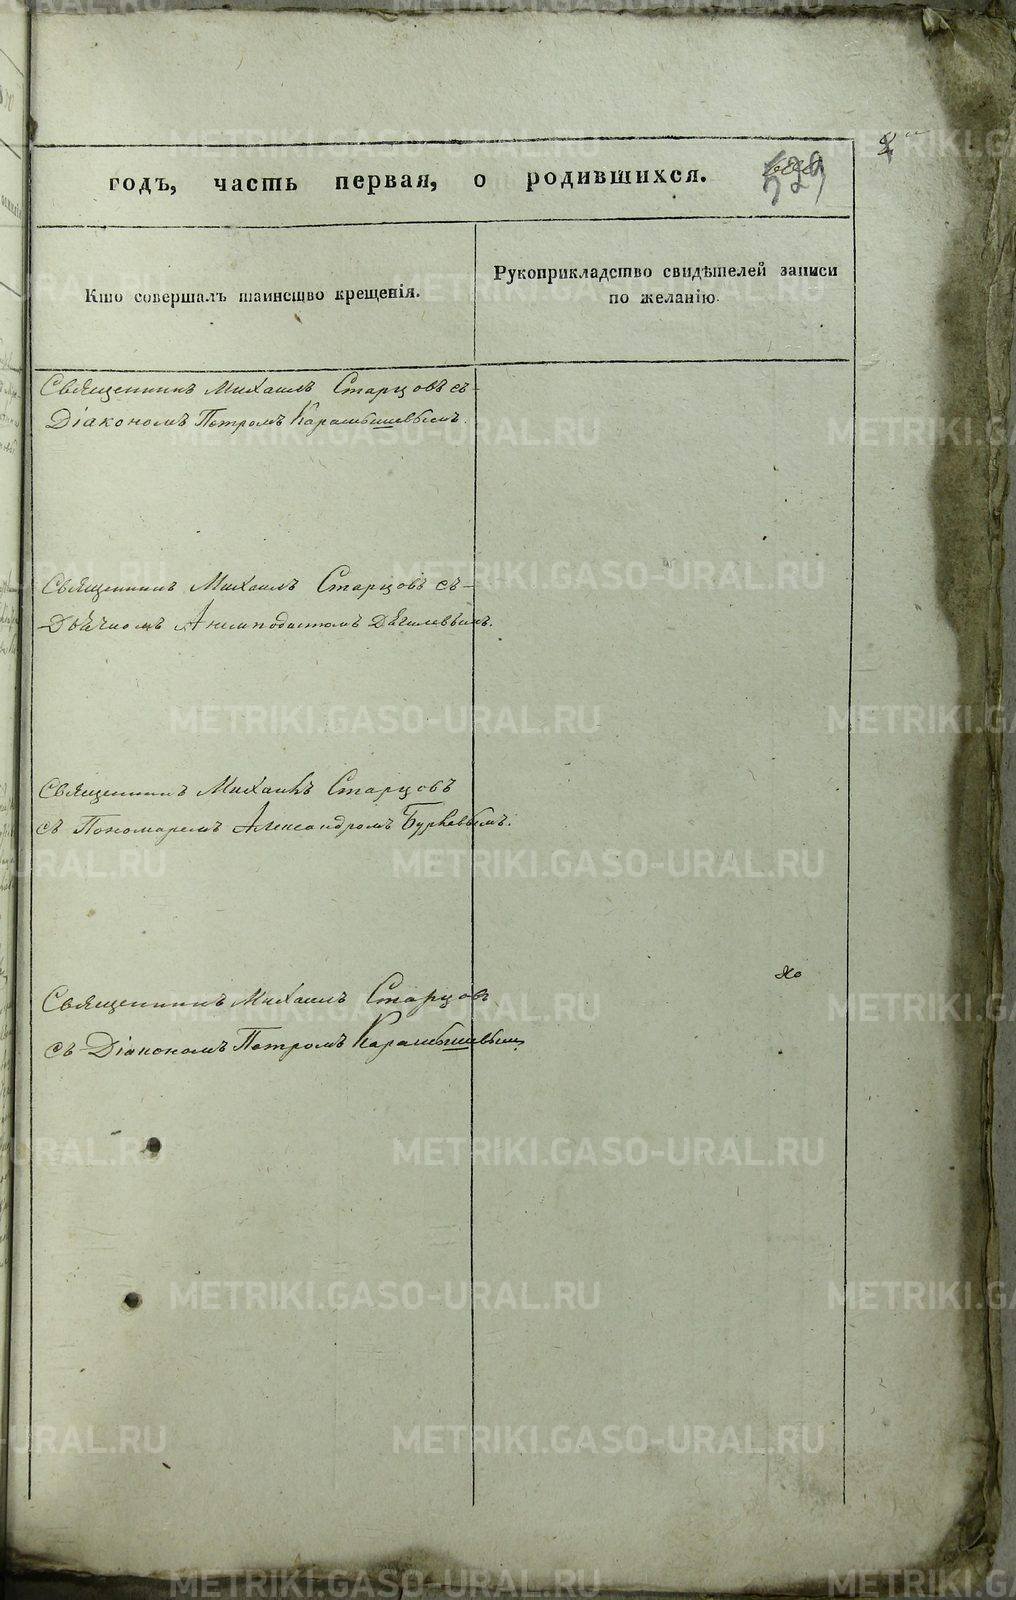 годъ, часть первая, о родившихся.
529
Кто совершалъ таинство крещенія.
Рукоприкладство свидѣтелей записи
по желанію.
Священникъ Михаилъ Старцовъ съ
Діакономъ Петромъ Карамышевымъ.
Священникъ Михаилъ Старцовъ съ
Дьячкомъ Анемподистомъ
Священникъ Михаилъ Старцовъ
съ Пономаремъ Александромъ
Священникъ Михаилъ Старцовъ
съ Діакономъ Петромъ Карамышевым
METRIKI.GASO-URAL.RU